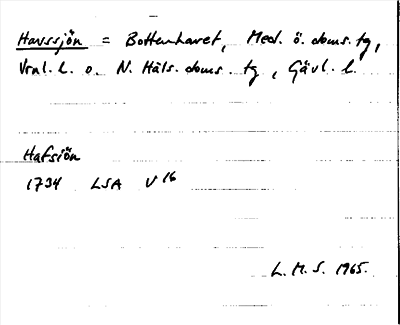 Havssjön = Bottenhavet, Med. ö. doms. tg,
Vnl. l. o. N. Häls. doms. tg, Gävl. l.
Hafsiön
1734 LSA V16
L. M. S. 1965.